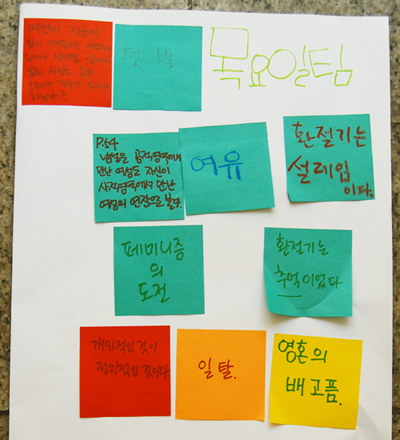 목요일팀
P.54
남성은 공적영역에서
만난 여성도 자신이
사적영역에서 만난
여성의 연장으로 본다.
여유
환절기는
설레임
이다.
페미니즘
의
도전
환절기는
추억이었다
개인적인 것이
정치적인 것이다
일탈.
영혼의
배고픔.